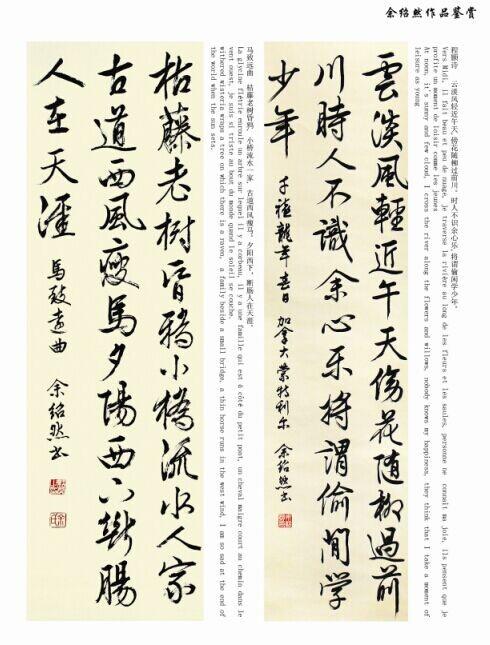 余绍然作品鉴赏
程颢诗　云淡风轻近午天，傍花随柳过前川，时人不识余心乐，将谓偷闲学少年。
Vers Midi, il fait beau et peu de nuage, je traverse la rivière au long de les fleurs et les saules, personne ne connaît ma joie, ils pensent que je
profite un moment de loisir comme les jeunes
At noon, it's sunny and few cloud, I cross the river along the flowers and willows, nobody knows my happiness, they think that I take a moment of
leisure as young
雲淡風輕近午天傍花随柳過前
川時人不識余心乐將謂偷閒學
少年
千禧龍年春日 加拿大蒙特利尔 余绍然书
马致远曲　枯藤老树昏鸦，小桥流水人家，古道西风瘦马。夕阳西下，断肠人在天涯。
La glycine flétrie enroule un arbre sur lequel il y a corbeau, il y a une famille qui est à côté du petit pont, un cheval maigre court au chemin dans le
vent ouest, je suis si triste au bout du monde quand le soleil se couche.
withered wisteria wraps a tree on which there is a raven, a family beside a small bridge, a thin horse runs in the west wind, I am so sad at the end of
the world when the sun sets.
枯藤老樹昏鴉小橋流水人家
古道西風瘦馬夕陽西下斷腸
人在天涯
馬致遠曲 余绍然书